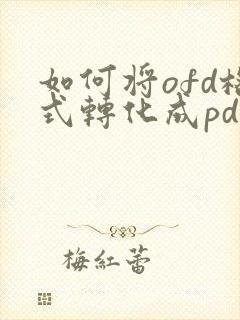 如何将ofd格
式轉化成pd
梅紅蕾